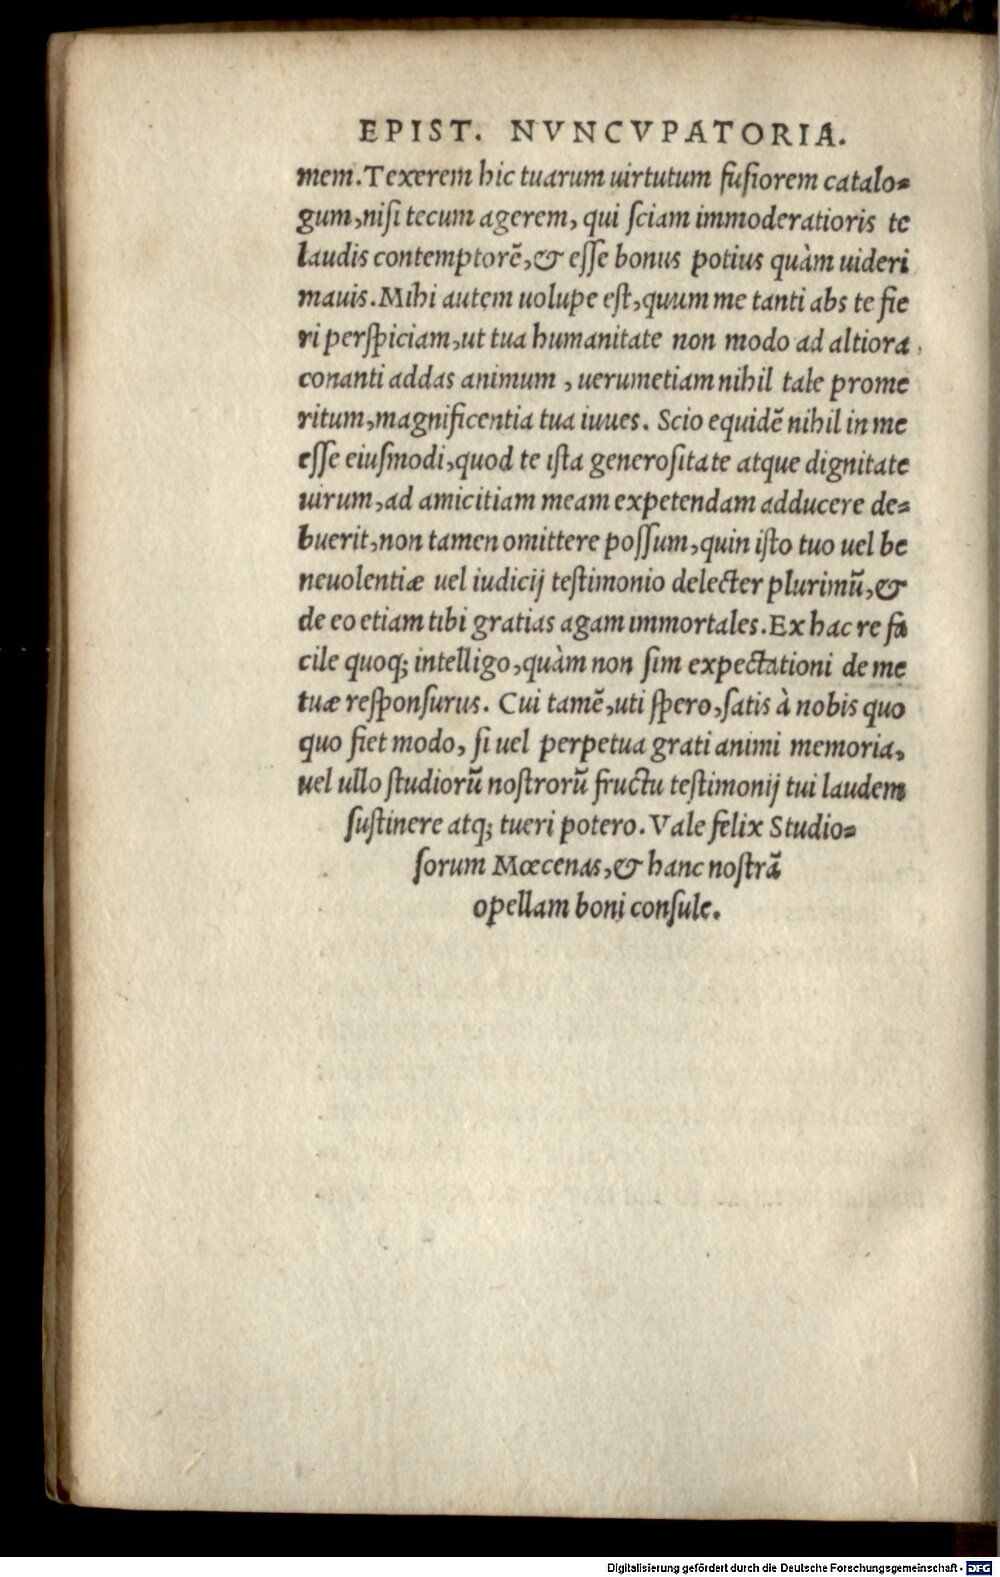 EPIST. NVNCVPATORIA.
mem. Texerem hic tuarum uirtutum fusiorem catalo=
gum, nisi tecum agerem, qui sciam immoderatioris te
laudis contemptorē, & esse bonus potius quàm uideri
mauis. Mihi autem uolupe est, quum me tanti abs te fie
ri perspiciam, ut tua humanitate non modo ad altiora
conanti addas animum, uerumetiam nihil tale prome
ritum, magnificentia tua iuues. Scio equidē nihil in me
esse eiusmodi, quod te ista generositate atque dignitate
uirum, ad amicitiam meam expetendam adducere de=
buerit, non tamen omittere possum, quin isto tuo uel be
neuolentiæ uel iudicij testimonio delecter plurimū, &
de eo etiam tibi gratias agam immortales. Ex hac re fa
cile quoq; intelligo, quàm non sim expectationi de me
tuæ responsurus. Cui tamē, uti spero, satis à nobis quo
quo fiet modo, si uel perpetua grati animi memoria,
uel ullo studiorū nostrorū fructu testimonij tui laudem
sustinere atq; tueri potero. Vale felix Studio=
sorum Mœcenas, & hanc nostrā
opellam boni consule.
Digitalisierung gefördert durch die Deutsche Forschungsgemeinschaft - DFG